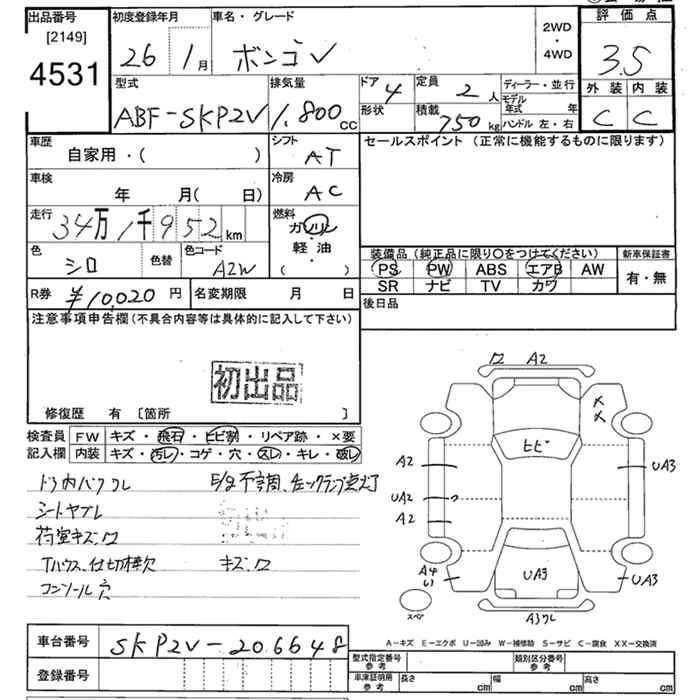 出品番号
[2149]
4531
初度登録年月
26 1月
車名・グレード
ボンゴV
2WD
・
4WD
評価点
3.5
外装 内装
C C
型式
ABF-SKP2V
排気量
1.800cc
ドア 4
形状
定員 2人
積載 750kg
ディーラー・並行
モデル年式 年
ハンドル 左・右
車歴
自家用・( )
シフト
AT
セールスポイント (正常に機能するものに限ります)
車検
年 月( 日)
冷房
AC
走行
34万1千952km
燃料
ガソリン
・
軽油
( )
色
シロ
色替
色コード
A2W
装備品(純正品に限り○をつけてください)
新車保証書
PS PW ABS エアB AW
SR ナビ TV カワ
有・無
R券 ¥10,020円
名変期限 月 日
後日品
注意事項申告欄(不具合内容等は具体的に記入して下さい)
初出品
修復歴 有 [箇所 ]
検査員
記入欄
FW キズ・飛石・ヒビ割・リペア跡・×要
内装 キズ・汚レ・コゲ・穴・スレ・キレ・破レ
ドア内バリクレ
E/g不調、チェックランプ点灯
シートヤブレ
荷室キズ・ワ
Tハウス、仕切棒欠
キズ・ワ
コンソール穴
ワ A2
××
ヒビ
A2
UA2
A2
UA3
UA3
UA3
A4
A3ワレ
スペア
A-キズ E-エクボ U-凹み W-補修跡 S-サビ C-腐食 XX-交換済
車台番号
SKP2V-206648
登録番号
型式指定番号
参考
類別区分番号
参考
車庫証明用
参考
長さ cm
幅 cm
高さ cm